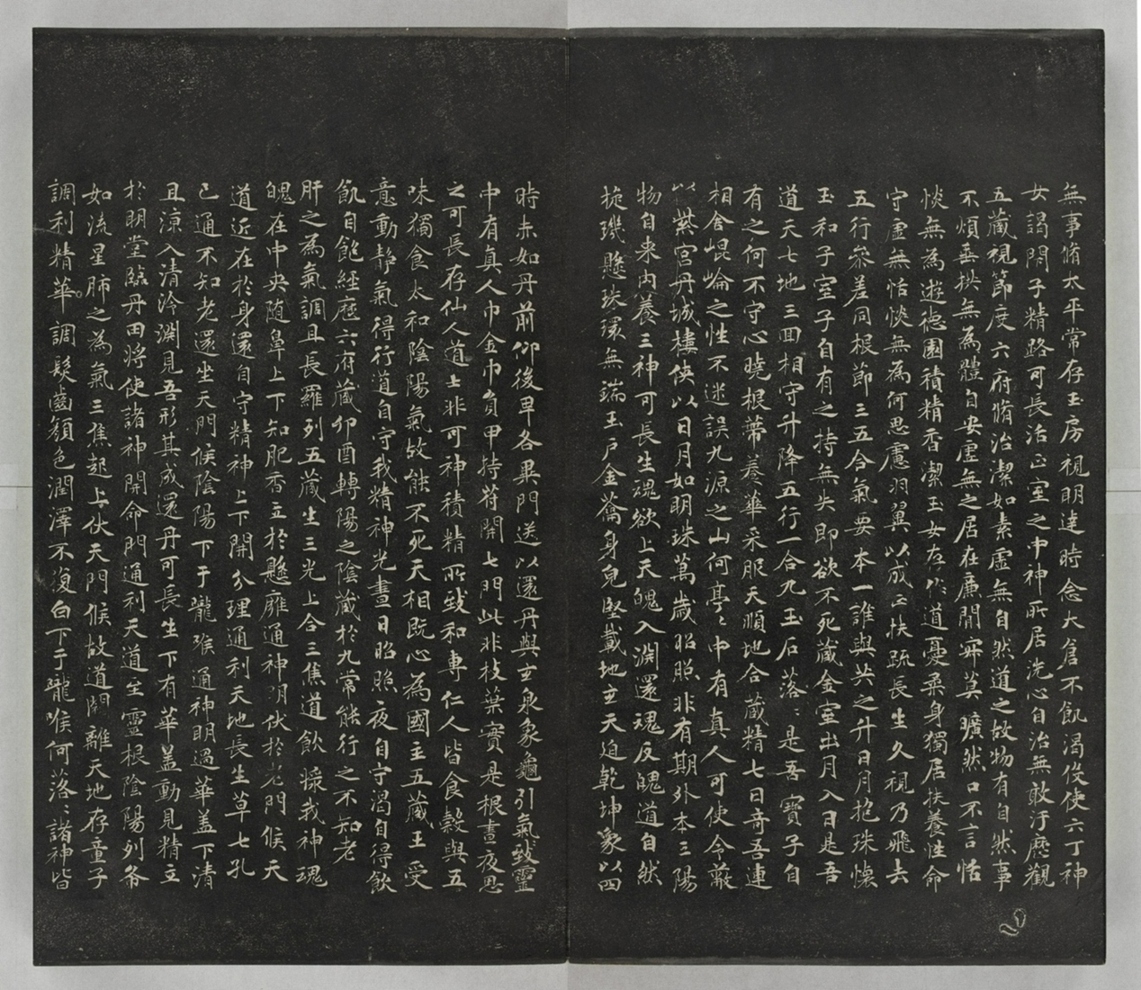 無事脩太平常存玉房視明達時念大倉不飢渴役使六丁神
女謁閇子精路可長活正室之中神所居洗心自治無敢汙歷觀
五藏視節度六府脩治潔如素虛無自然道之故物有自然事
不煩垂拱無為體自安虛無之居在廉間寂莫曠然口不言恬
惔無為遊德園積精香潔玉女存作道憂柔身獨居扶養性命
守虛無恬惔無為何思慮羽翼以成正扶疏長生久視乃飛去
五行參差同根節三五合氣要本一誰與共之升日月抱珠懷
玉和子室子自有之持無失即欲不死藏金室出月入日是吾
道天七地三回相守升降五行一合九玉石落〻是吾寶子自
有之何不守心曉根蔕養華采服天順地合藏精七日奇吾連
相舍崐崘之性不迷誤九源之山何亭〻中有真人可使令蔽
以紫宮丹城樓俠以日月如明珠萬歲昭照非有期外本三陽
物自来內養三神可長生魂欲上天魄入淵還魂反魄道自然
旋璣懸珠環無端玉戶金籥身皃堅載地玄天迫乾坤象以四
時赤如丹前仰後卑各異門送以還丹與玄泉象龜引氣致靈
中有真人巾金巾負甲持符開七門此非枝葉實是根晝夜思
之可長存仙人道士非可神積精所致和專仁人皆食穀與五
味獨食太和陰陽氣故能不死天相既心為國主五藏王受
意動静氣得行道自守我精神光晝日昭照夜自守渴自得飲
飢自飽經歷六府藏卯酉轉陽之陰藏於九常能行之不知老
肝之為氣調且長羅列五藏生三光上合三焦道飲我神魂
魄在中央随鼻上下知肥香立於懸廱通神明伏於老門候天
道近在於身還自守精神上下開分理通利天地長生草七孔
已通不知老還坐天門候陰陽下于嚨喉通神明過華盖下清
且涼入清泠淵見吾形其成還丹可長生下有華盖動見精立
於明堂臨丹田將使諸神開命門通利天道至靈根陰陽列布
如流星肺之為氣三焦起上伏天門候故道闚離天地存童子
調利精華調髮齒顏色潤澤不復白下于嚨喉何落〻諸神皆